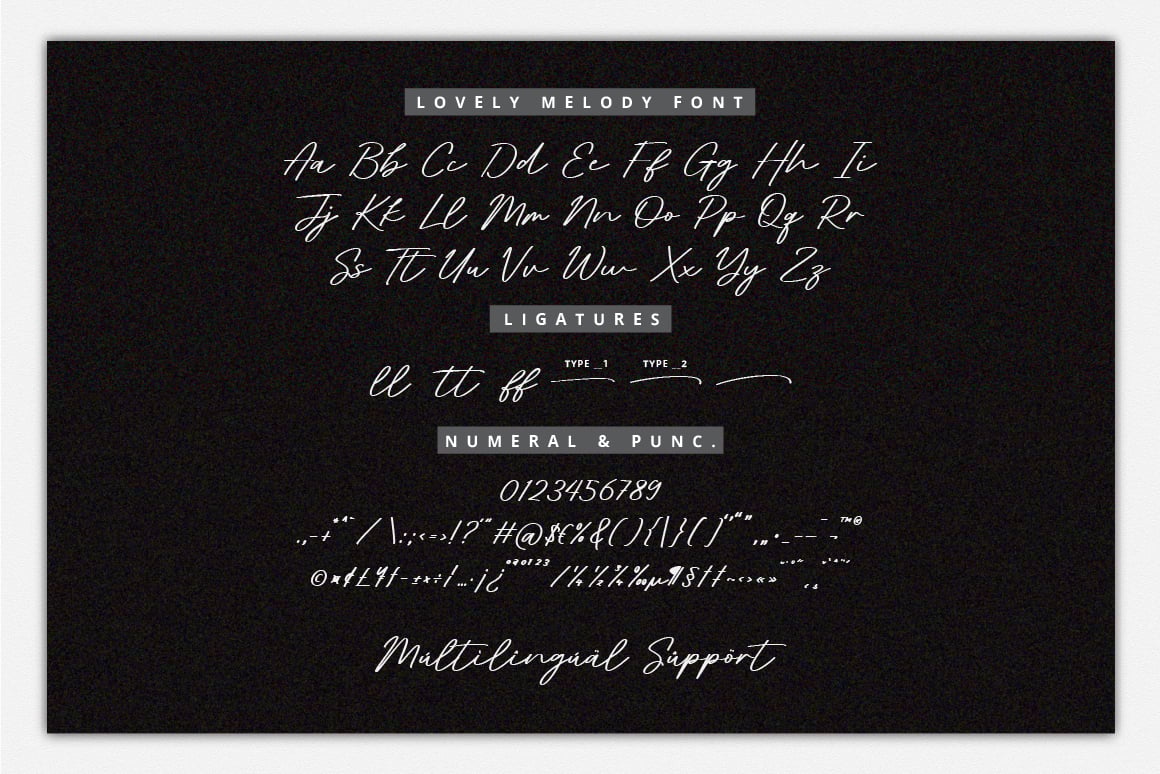 LOVELY MELODY FONT
Aa Bb Cc Dd Ee Ff Gg Hh Ii
Jj Kk Ll Mm Nn Oo Pp Qq Rr
Ss Tt Uu Vv Ww Xx Yy Zz
LIGATURES
TYPE __1 TYPE __2
ll tt ff
NUMERAL & PUNC.
0123456789
.,-+*^~/\:;<=>!?'"#@$€%&(){|}()‘’“”‚„•_–—¯¬™®
©¤¢£¥ƒ-±×÷¦…·¡¿ºª0123/¼½¾‰µ¶§†‡~‹›«»
Múltilingúäl Sůppört